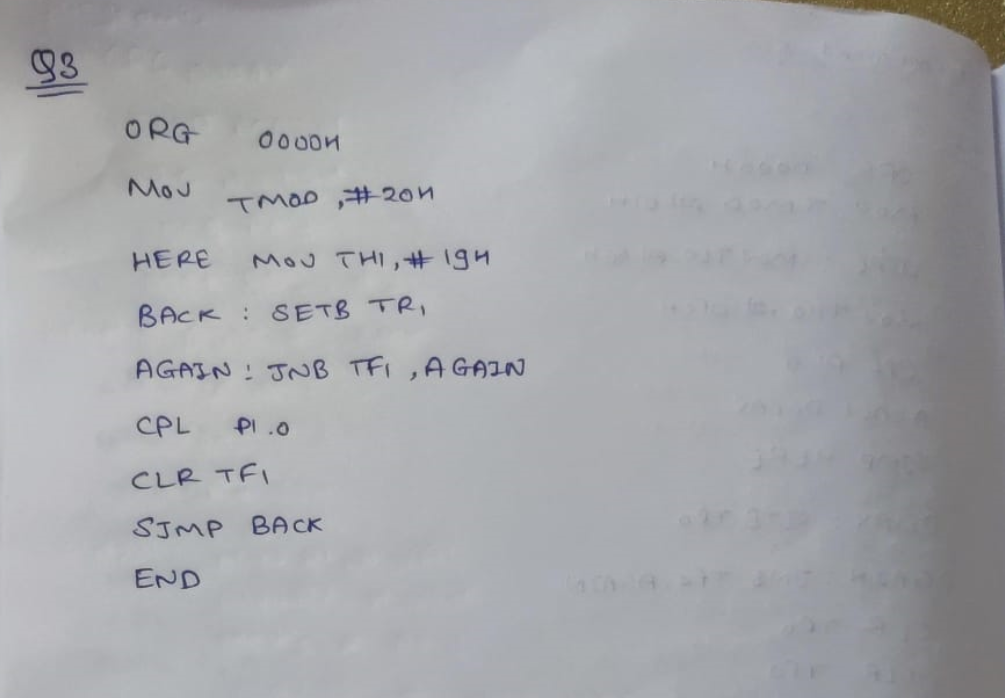 Q3
ORG 0000H
MOV TMOD,#20H
HERE MOV TH1,#19H
BACK : SETB TR1
AGAIN : JNB TF1 ,AGAIN
CPL P1.0
CLR TF1
SJMP BACK
END